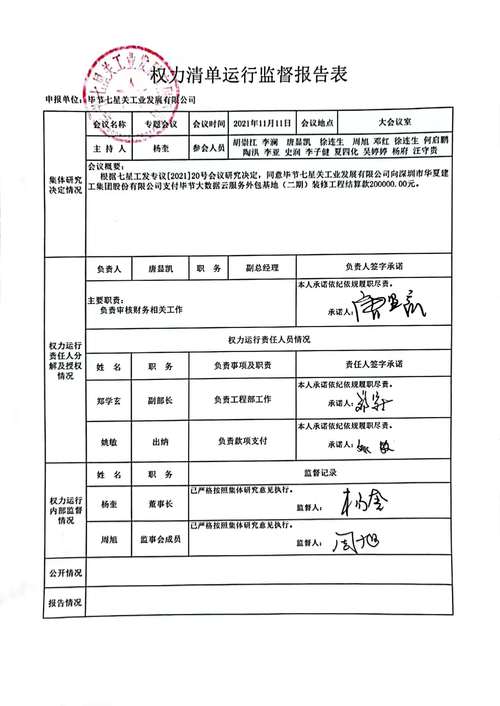 权力清单运行监督报告表
申报单位：毕节七星关工业发展有限公司
会议名称 专题会议 会议时间 2021年11月11日 会议地点 大会议室
主持人 杨奎 参会人员 胡崇江 李澜 唐显凯 徐连生 周旭 邓红 徐连生 何启鹏
陶洪 李亚 史润 李子健 夏四化 吴婷婷 杨府 汪守贵
集体研究
决定情况
会议概要：
根据七星工发专议[2021]20号会议研究决定，同意毕节七星关工业发展有限公司向深圳市华夏建
工集团股份有限公司支付毕节大数据云服务外包基地（二期）装修工程结算款200000.00元。
权力运行
责任人分
解及授权
情况
负责人 唐显凯 职务 副总经理 负责人签字承诺
主要职责：
负责审核财务相关工作
本人承诺依纪依规履职尽责。
承诺人：唐显凯
权力运行责任人员情况
姓名 职务 负责事项及职责 责任人签字承诺
郑学玄 副部长 负责工程部工作
本人承诺依纪依规履职尽责。
承诺人：
姚敏 出纳 负责款项支付
本人承诺依纪依规履职尽责。
承诺人：姚敏
权力运行
内部监督
情况
姓名 职务 监督记录
杨奎 董事长
已严格按照集体研究意见执行。
监督人：杨奎
周旭 监事会成员
已严格按照集体研究意见执行。
监督人：周旭
公开情况
报告情况